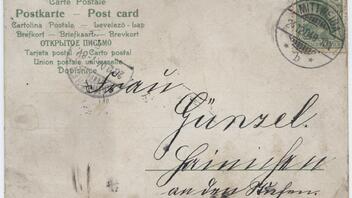 Carte Postale
Postkarte – Post card
Cartolina Postale – Levelező-Lap
Brefkort – Briefkaart – Brevkort
ОТКРЫТОЕ ПИСЬМО
Tarjeta postal – Carto postal
Union postale universelle
Dopisnice
MITTWEIDA
Frau
Günzel.
Hainichen
an den Stufen.